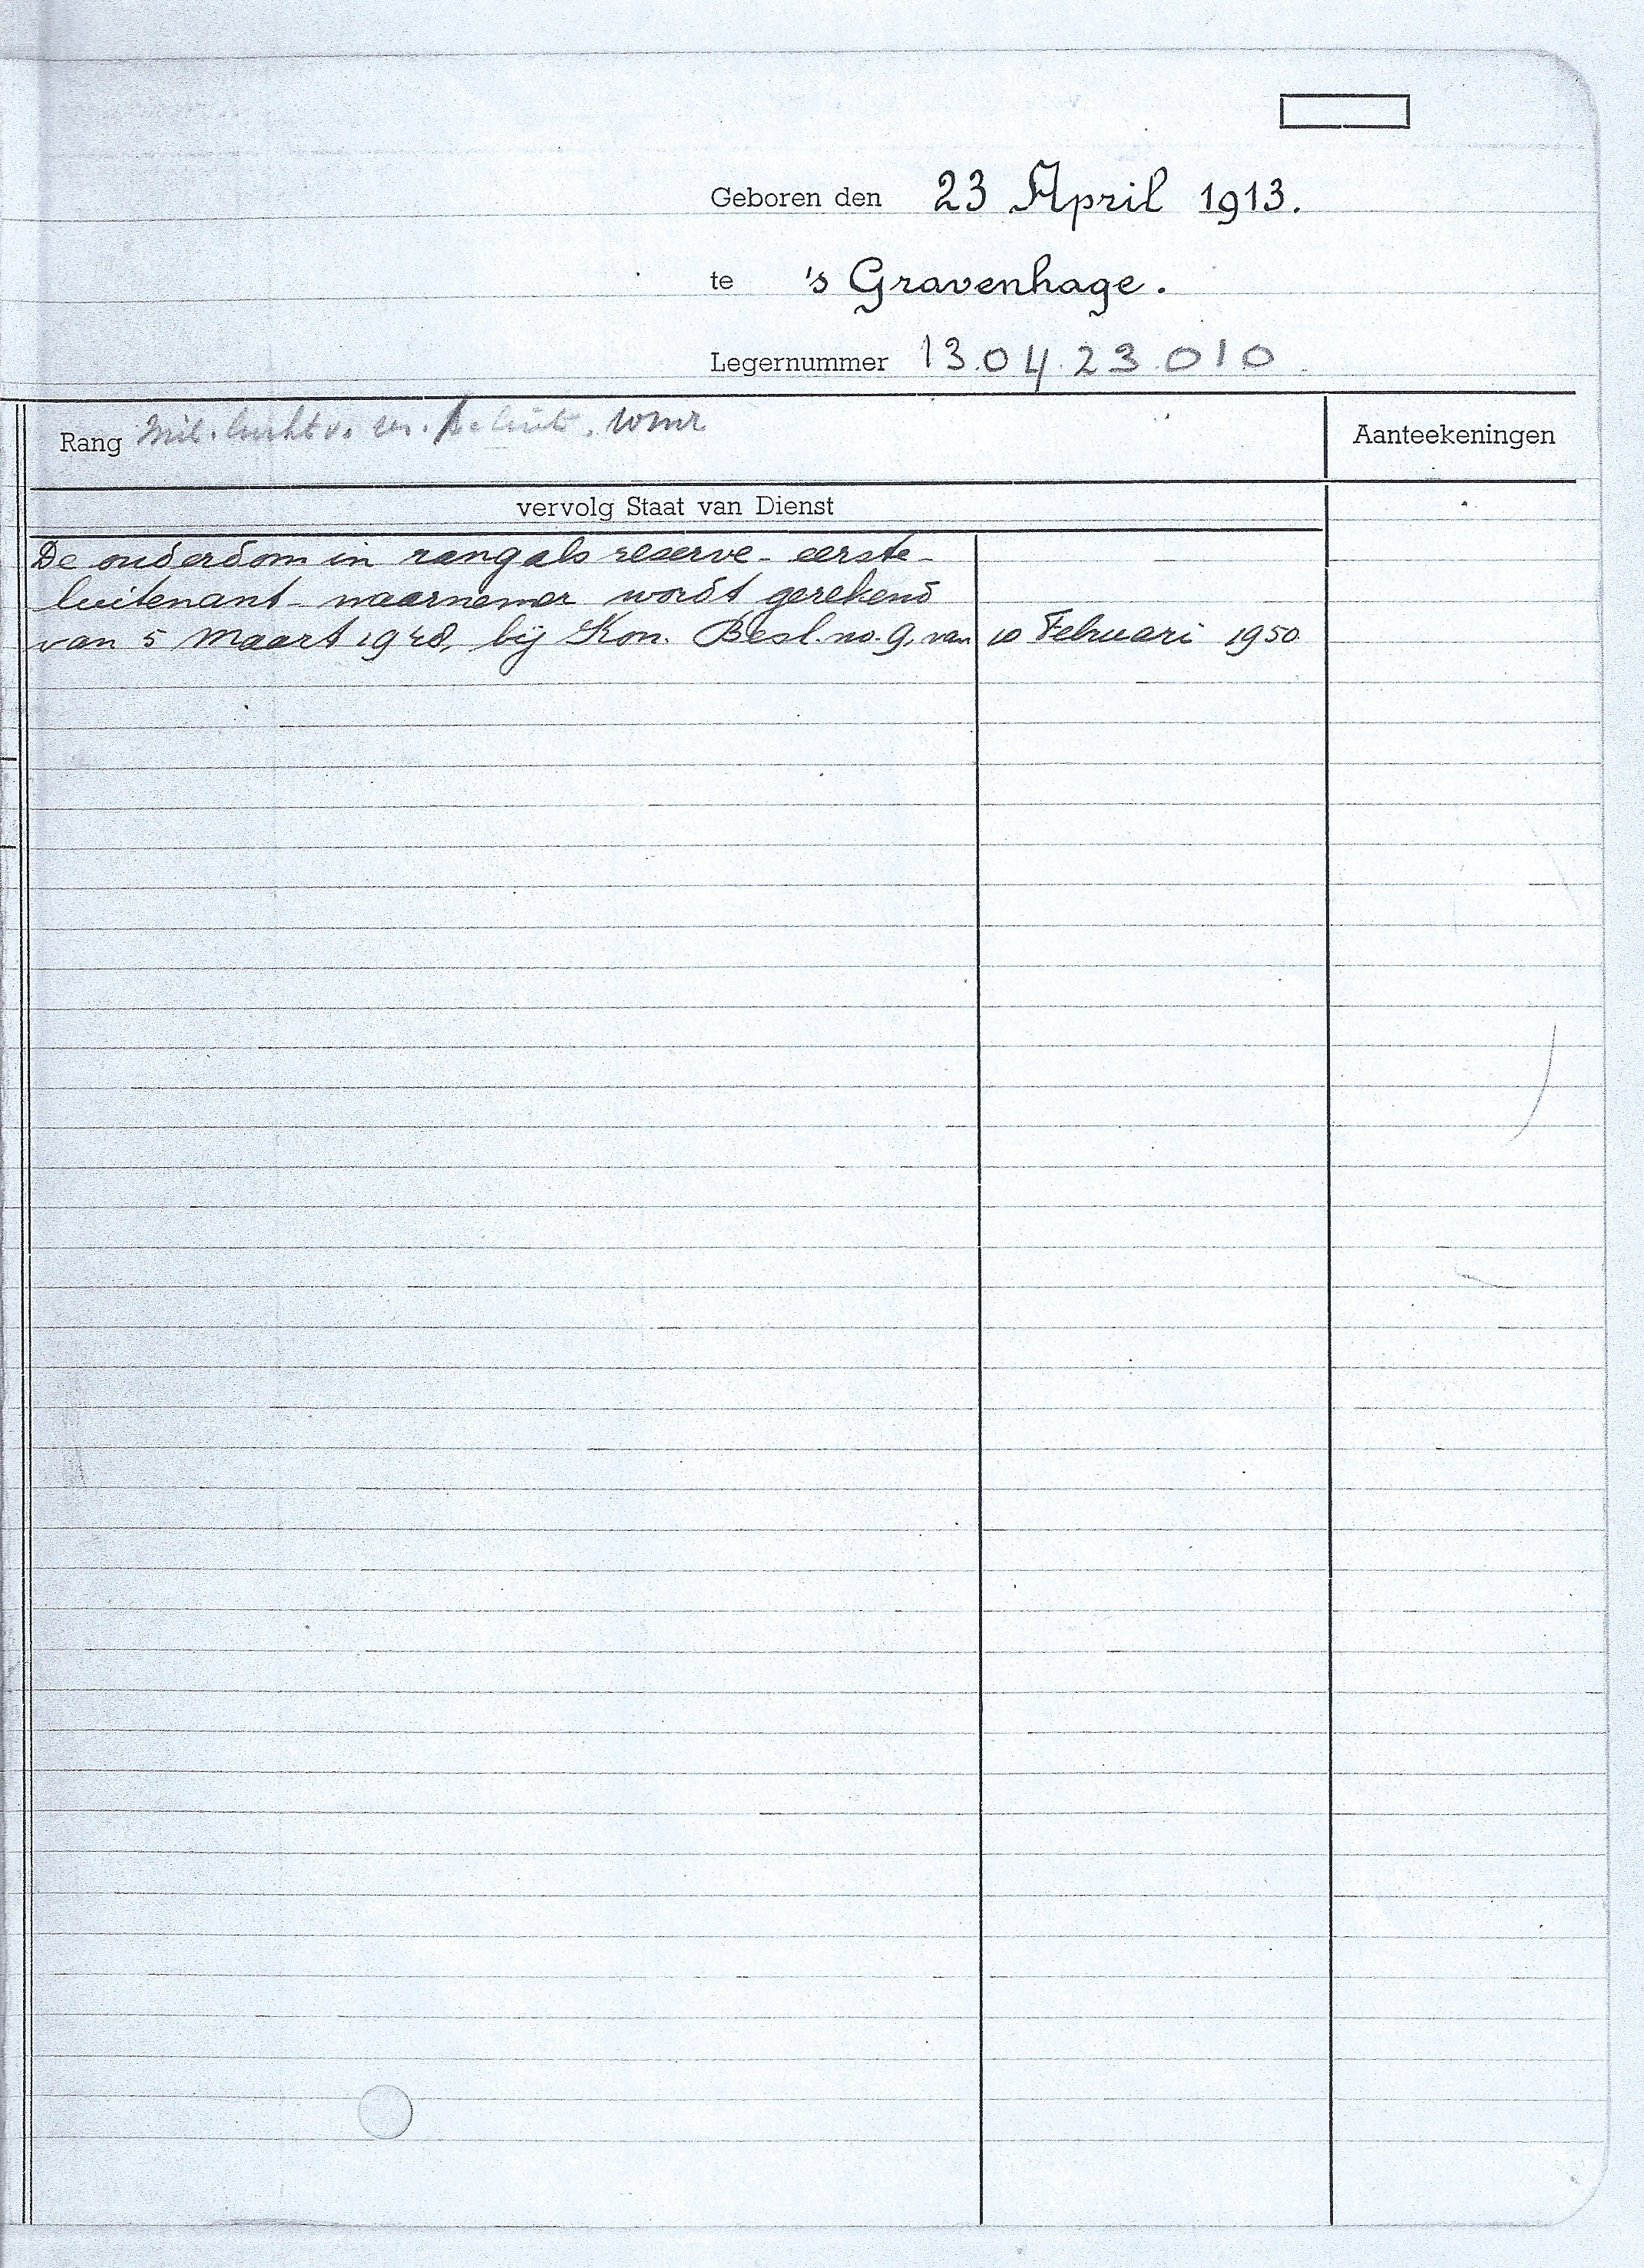 Geboren den 23 April 1913.
te 's Gravenhage.
Legernummer 13.04.23.010
Rang Mil. luchtv. wnr
Aanteekeningen
vervolg Staat van Dienst
De ouderdom in rang als reserve-eerste-
luitenant-waarnemer wordt gerekend
van 5 Maart 1948, bij Kon. Besl. no. 9, van 10 Februari 1950